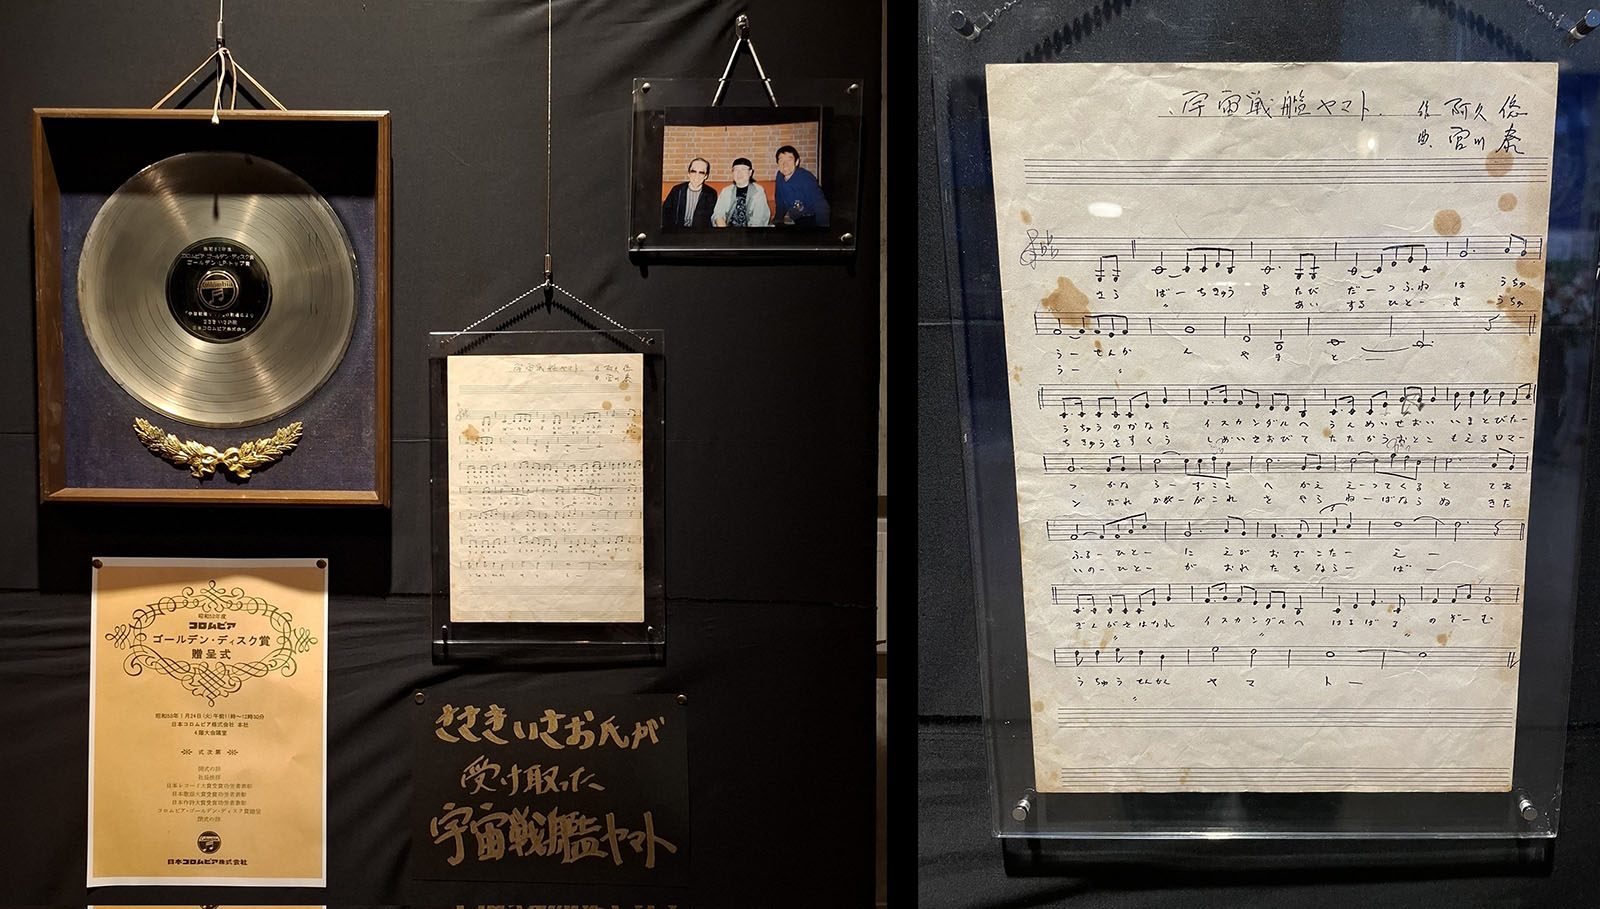 昭和52年度
コロムビア・ゴールデン・ディスク賞
ゴールデン・LP・トップ賞
Columbia
ささきいさお
日本コロムビア株式会社
昭和52年度
コロムビア
ゴールデン・ディスク賞
贈呈式
昭和53年1月24日(火)午前11時〜12時30分
日本コロムビア株式会社 本社
4階大会議室
式次第
開式の辞
社長挨拶
日本レコード大賞受賞功労者表彰
日本歌謡大賞受賞功労者表彰
日本作詩大賞受賞功労者表彰
コロムビア・ゴールデン・ディスク賞贈呈
閉式の辞
日本コロムビア株式会社
宇宙戦艦ヤマト 作 阿久 悠
曲 宮川 泰
ささきいさお氏が
受け取った
宇宙戦艦ヤマト
宇宙戦艦ヤマト 作 阿久 悠
曲 宮川 泰
さら ばーちきゅう よ たび だーつふね は うちゅ
〃 あい するひとー よ うちゅ
うーせんか ん や ま とー
うー 〃
うちゅうのかなた イスカンダルへ うんめいせおい いまとびた
ちきゅうをすくう しめいをおびて たたかうおとこ もえるロマー
つ かな らーずここ へ かえ えーってくる と てを
ン だれ かがーがこれ を やら ねーばならぬ きた
ふるーひとー に えが おでこたー えー
いのーひとー が おれ たちならー ばー
ぎんがをはなれ イスカンダルへ はるばる のぞーむ
〃 〃 〃
うちゅうせんかん ヤ マ トー
〃